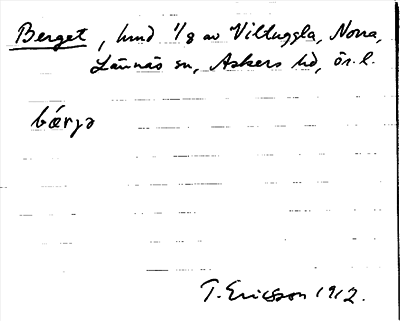 Berget, hmd 1/8 av Viltuggla, Norra,
Lännäs sn, Askers hd, ör. l.
bǽrjə
T. Ericsson 1912.